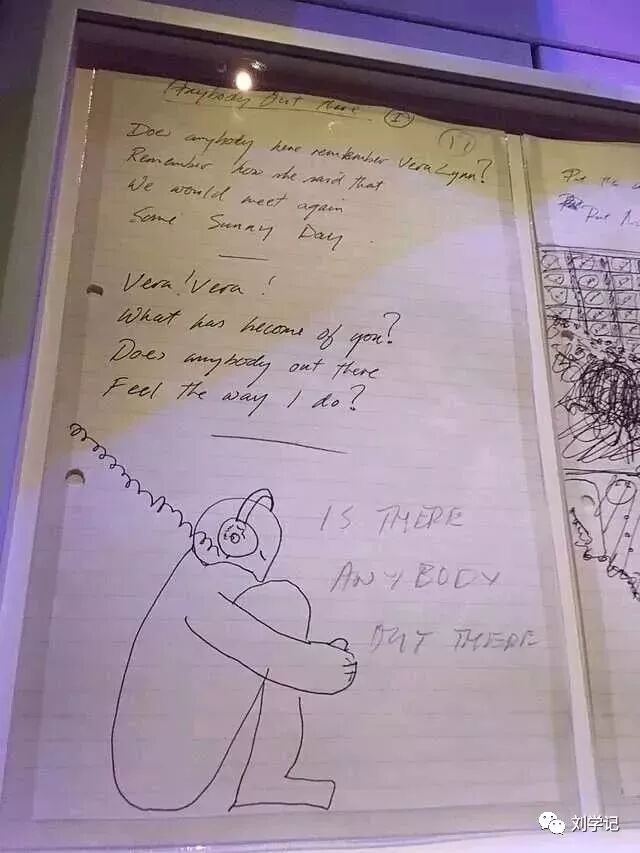 Anybody Out There. I
11
Does anybody here remember Vera Lynn?
Remember how she said that
We would meet again
Some Sunny Day.
Vera! Vera!
What has become of you?
Does anybody out there
Feel the way I do?
IS THERE
ANYBODY
OUT THERE
Put
Put
刘学记